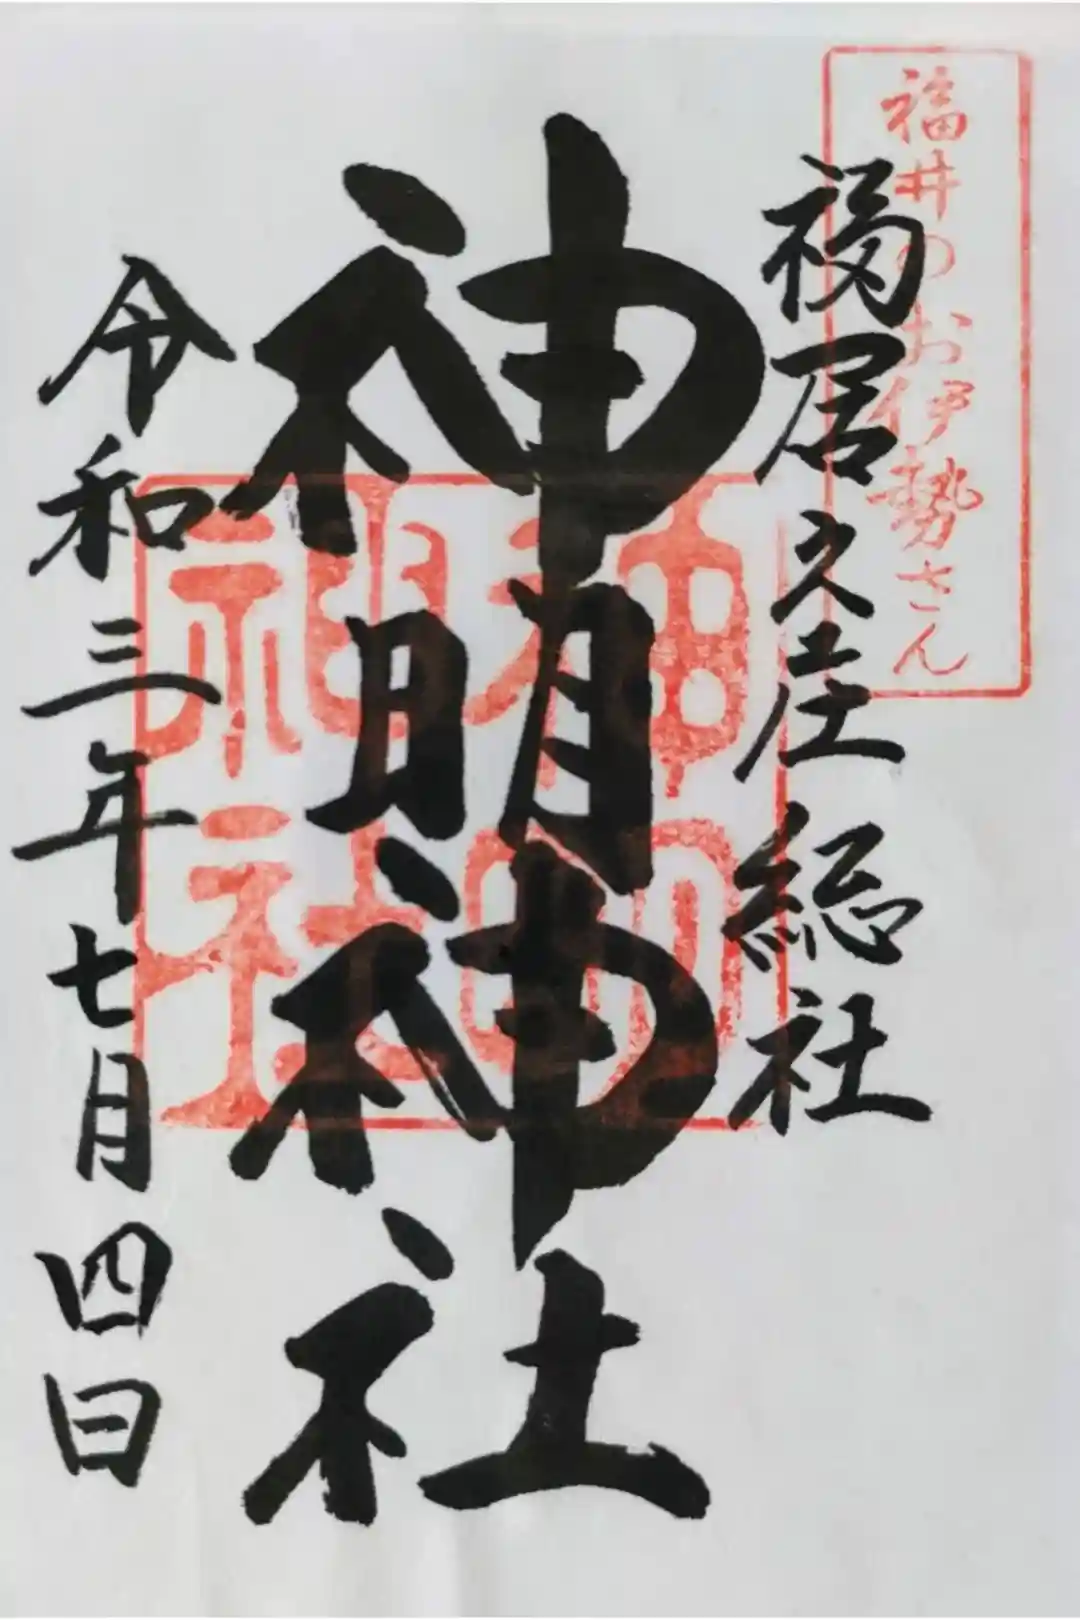 福井のお伊勢さん
福居之庄 総社
神明神社
神明神社
令和三年七月四日